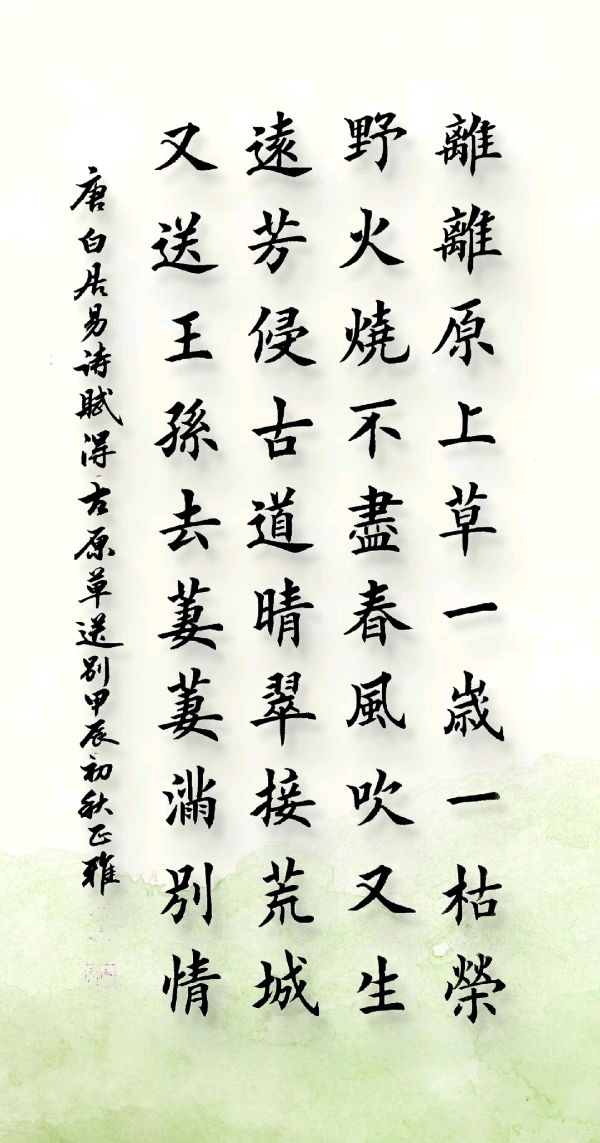 離離原上草一歳一枯榮
野火燒不盡春風吹又生
遠芳侵古道晴翠接荒城
又送王孫去萋萋滿別情
唐白居易诗賦得古原草送別甲辰初秋正雅